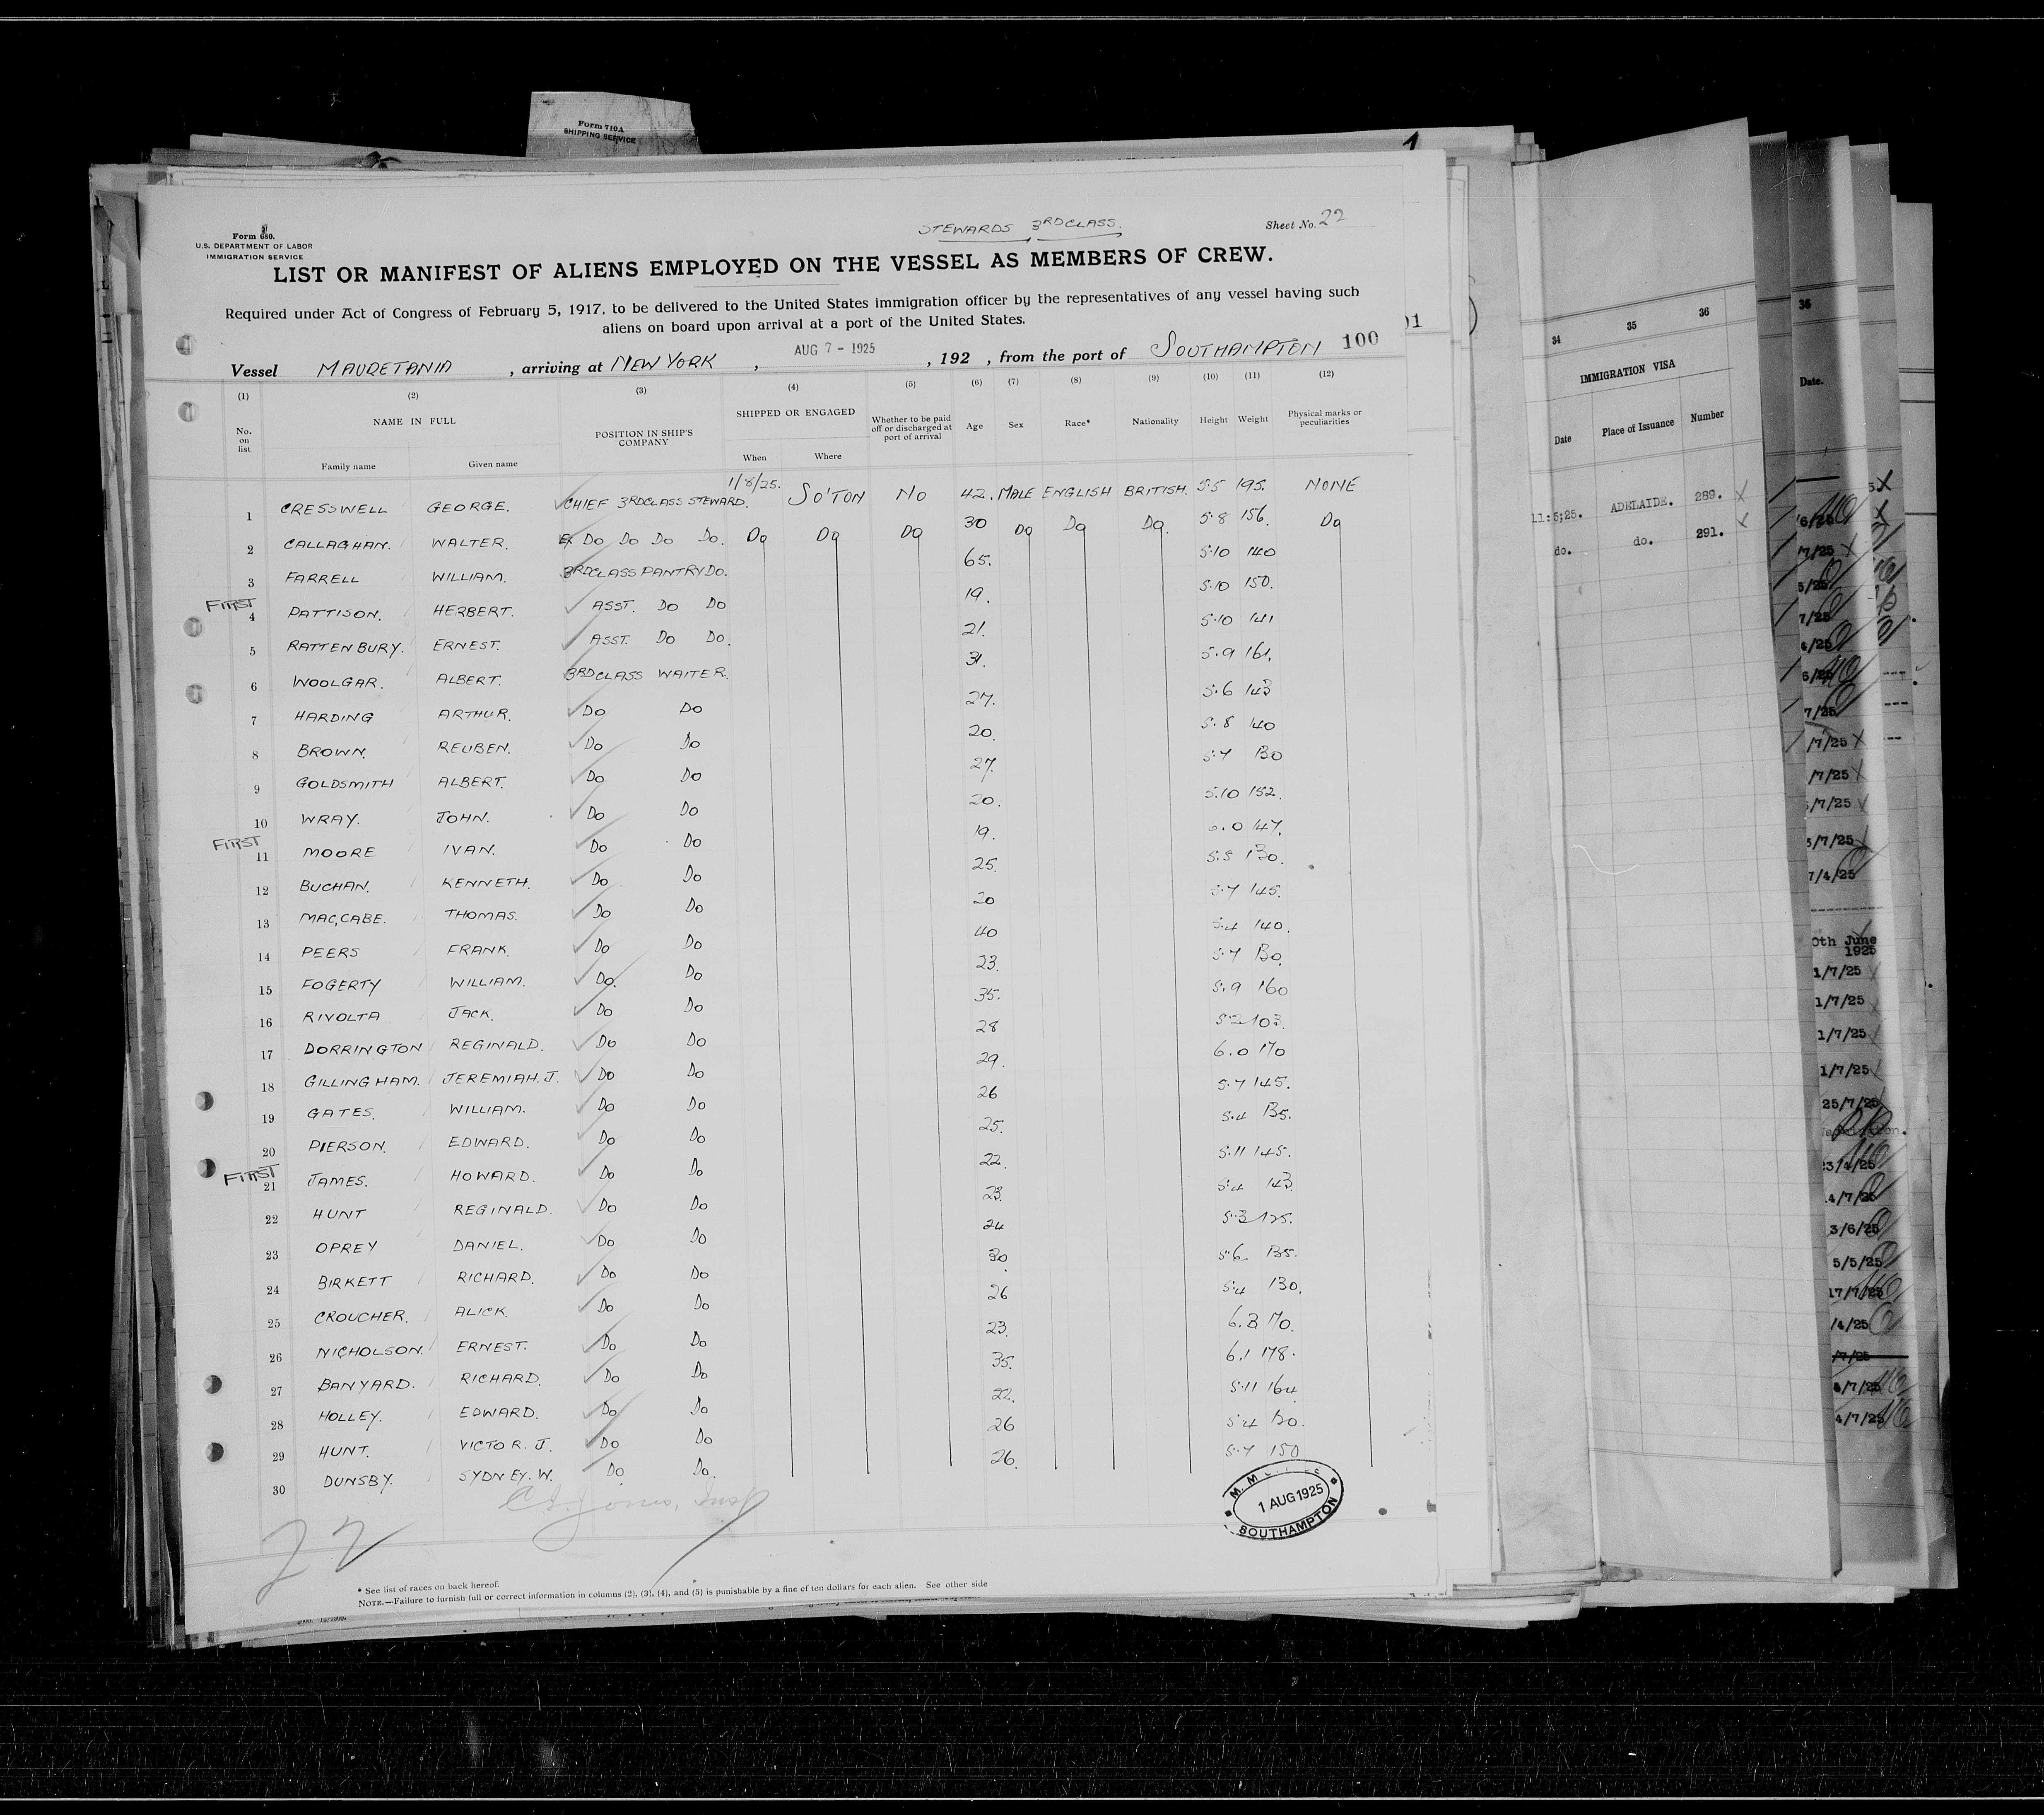 Form 710A
SHIPPING SERVICE
1
Form 680.
U.S. DEPARTMENT OF LABOR
IMMIGRATION SERVICE
STEWARDS 3RD CLASS.
Sheet No. 22
LIST OR MANIFEST OF ALIENS EMPLOYED ON THE VESSEL AS MEMBERS OF CREW.
Required under Act of Congress of February 5, 1917, to be delivered to the United States immigration officer by the representatives of any vessel having such
aliens on board upon arrival at a port of the United States.
Vessel MAURETANIA , arriving at NEW YORK , AUG 7 - 1925 , 192 , from the port of SOUTHAMPTON 100
(1) (2) (3) (4) (5) (6) (7) (8) (9) (10) (11) (12)
No. on list NAME IN FULL POSITION IN SHIP'S COMPANY SHIPPED OR ENGAGED Whether to be paid off or discharged at port of arrival Age Sex Race* Nationality Height Weight Physical marks or peculiarities
Family name Given name When Where
1 CRESSWELL GEORGE. CHIEF 3RD CLASS STEWARD. 1/8/25. SO'TON NO 42. MALE ENGLISH BRITISH. 5.5 195. NONE
2 CALLAGHAN. WALTER. Do Do Do Do. Do Do Do 30 Do Do Do. 5.8 156. Do
3 FARRELL WILLIAM. 3RD CLASS PANTRY DO. 65. 5.10 140
FIRST 4 PATTISON. HERBERT. ASST. Do Do 19. 5.10 150.
5 RATTENBURY. ERNEST. ASST. Do Do. 21. 5.10 141
6 WOOLGAR. ALBERT. 3RD CLASS WAITER. 31. 5.9 161.
7 HARDING ARTHUR. Do Do 27. 5.6 143
8 BROWN. REUBEN. Do Do 20. 5.8 140
9 GOLDSMITH ALBERT. Do Do 27. 5.7 130
10 WRAY. JOHN. Do Do 20. 5.10 152.
FIRST 11 MOORE IVAN. Do Do 19. 6.0 147.
12 BUCHAN. KENNETH. Do Do 25. 5.5 130.
13 MAC,CABE. THOMAS. Do Do 20 5.7 145.
14 PEERS FRANK. Do Do 40 5.4 140.
15 FOGERTY WILLIAM. Do. Do 23. 5.7 130.
16 RIVOLTA JACK. Do Do 35. 5.9 160
17 DORRINGTON REGINALD. Do Do 28 5.2 103.
18 GILLINGHAM. JEREMIAH. J. Do Do 29. 6.0 170
19 GATES. WILLIAM. Do Do 26 5.7 145.
20 PIERSON. EDWARD. Do Do 25. 5.4 135.
FIRST 21 JAMES. HOWARD. Do Do 22. 5.11 145.
22 HUNT REGINALD. Do Do 23. 5.4 143.
23 OPREY DANIEL. Do Do 24 5.3 125.
24 BIRKETT RICHARD. Do Do 30 5.6 135.
25 CROUCHER. ALICK. Do Do 26 5.4 130.
26 NICHOLSON. ERNEST. Do Do 23. 6.3 170.
27 BANYARD. RICHARD. Do Do 35. 6.1 178.
28 HOLLEY. EDWARD. Do Do 22. 5.11 164
29 HUNT. VICTOR. J. Do Do 26 5.4 120.
30 DUNSBY. SYDNEY. W. Do Do. 26. 5.7 150
22
1 AUG 1925
SOUTHAMPTON
* See list of races on back hereof.
NOTE.—Failure to furnish full or correct information in columns (2), (3), (4), and (5) is punishable by a fine of ten dollars for each alien. See other side
34 35 36
IMMIGRATION VISA
Date Place of Issuance Number
11:5;25. ADELAIDE. 289. X
do. do. 291. X
36
Date.
7/25
5/25
7/25
7/25
/7/25
/7/25
/7/25
7/4/25
0th June
1925
1/7/25
1/7/25
1/7/25
1/7/25
25/7/25
3/4/25
4/7/25
3/6/25
5/5/25
17/7/25
/4/25
/7/25
4/7/25